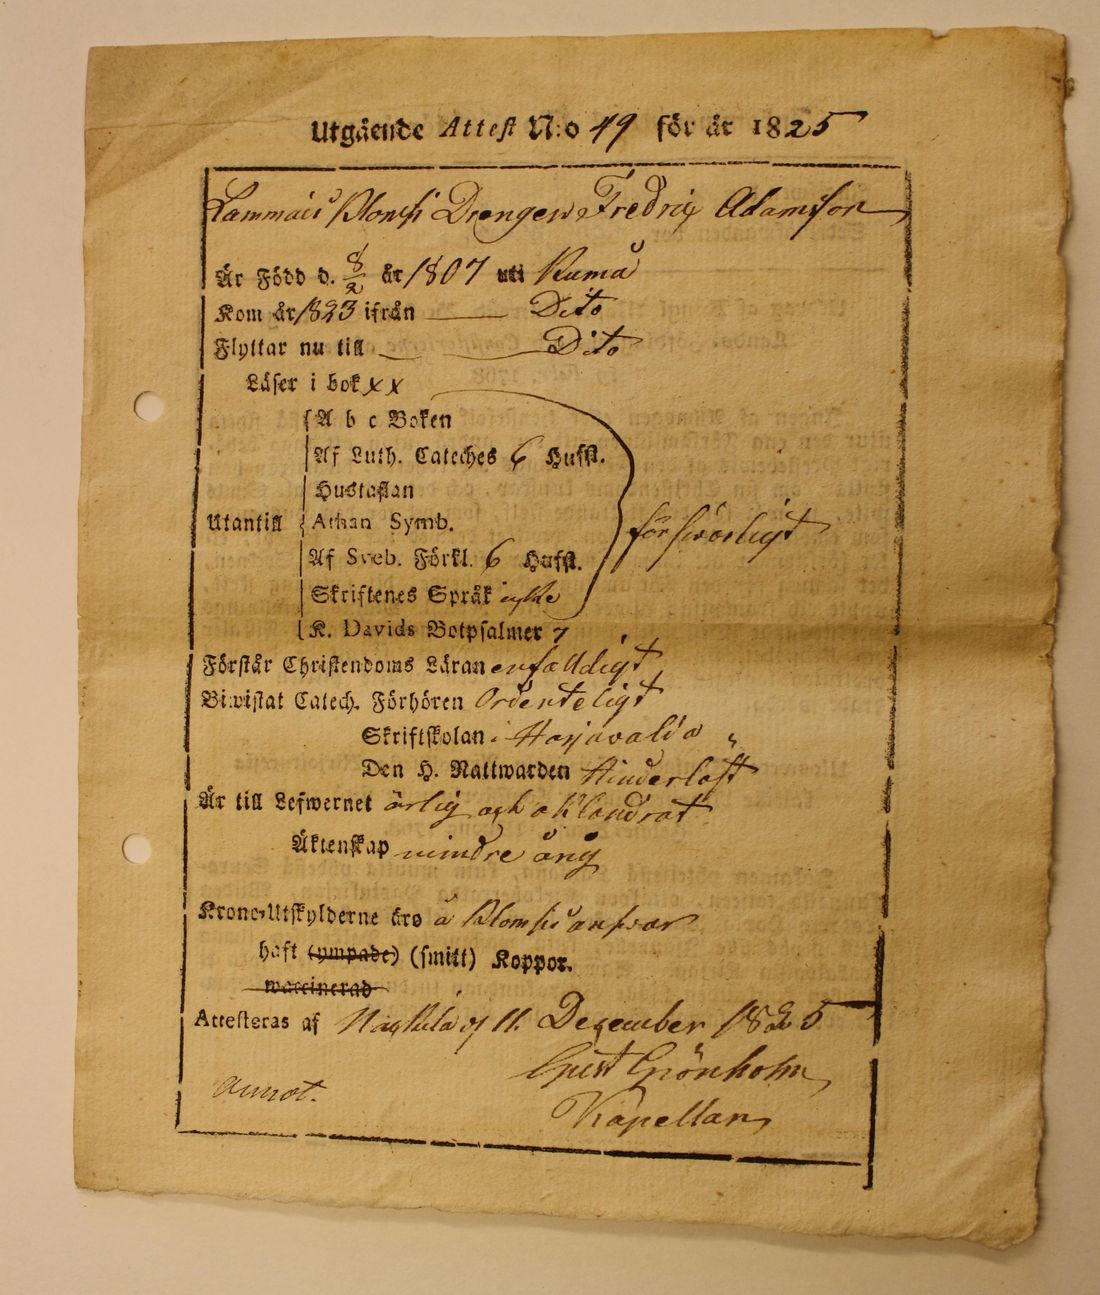 Utgående Attest N:o 49 för år 1825
Lammais Klomsi Drengen Fredric Adamsson
Är Född d. 8/2 år 1807 uti Kumå
Kom år 1823 ifrån Dito
Flyttar nu till Dito
Läser i bok x x
A b c Boken
Af Luth. Cateches 6 Hufst.
Hustaflan
Utantill Athan Symb. försvarligt
Af Sveb. Förkl. 6 Hufst.
Skriftenes Språk icke
K. Davids Botpsalmer 7
Förstår Christendoms Läran enfalldigt
Biwistat Catech. Förhören Ordenteligt
Skriftskolan i Harjavalda "
Den H. Nattwarden Hinderlöst
Är till Lefwernet ärlig och oklandrat
Äktenskap mindre årig
Krono-Utskylderne äro å Klomsis ansvar
haft (ympade) (smitt) Koppor.
waccinerad
Attesteras af 11. December 1825
Grönholm
annot. Kapellan